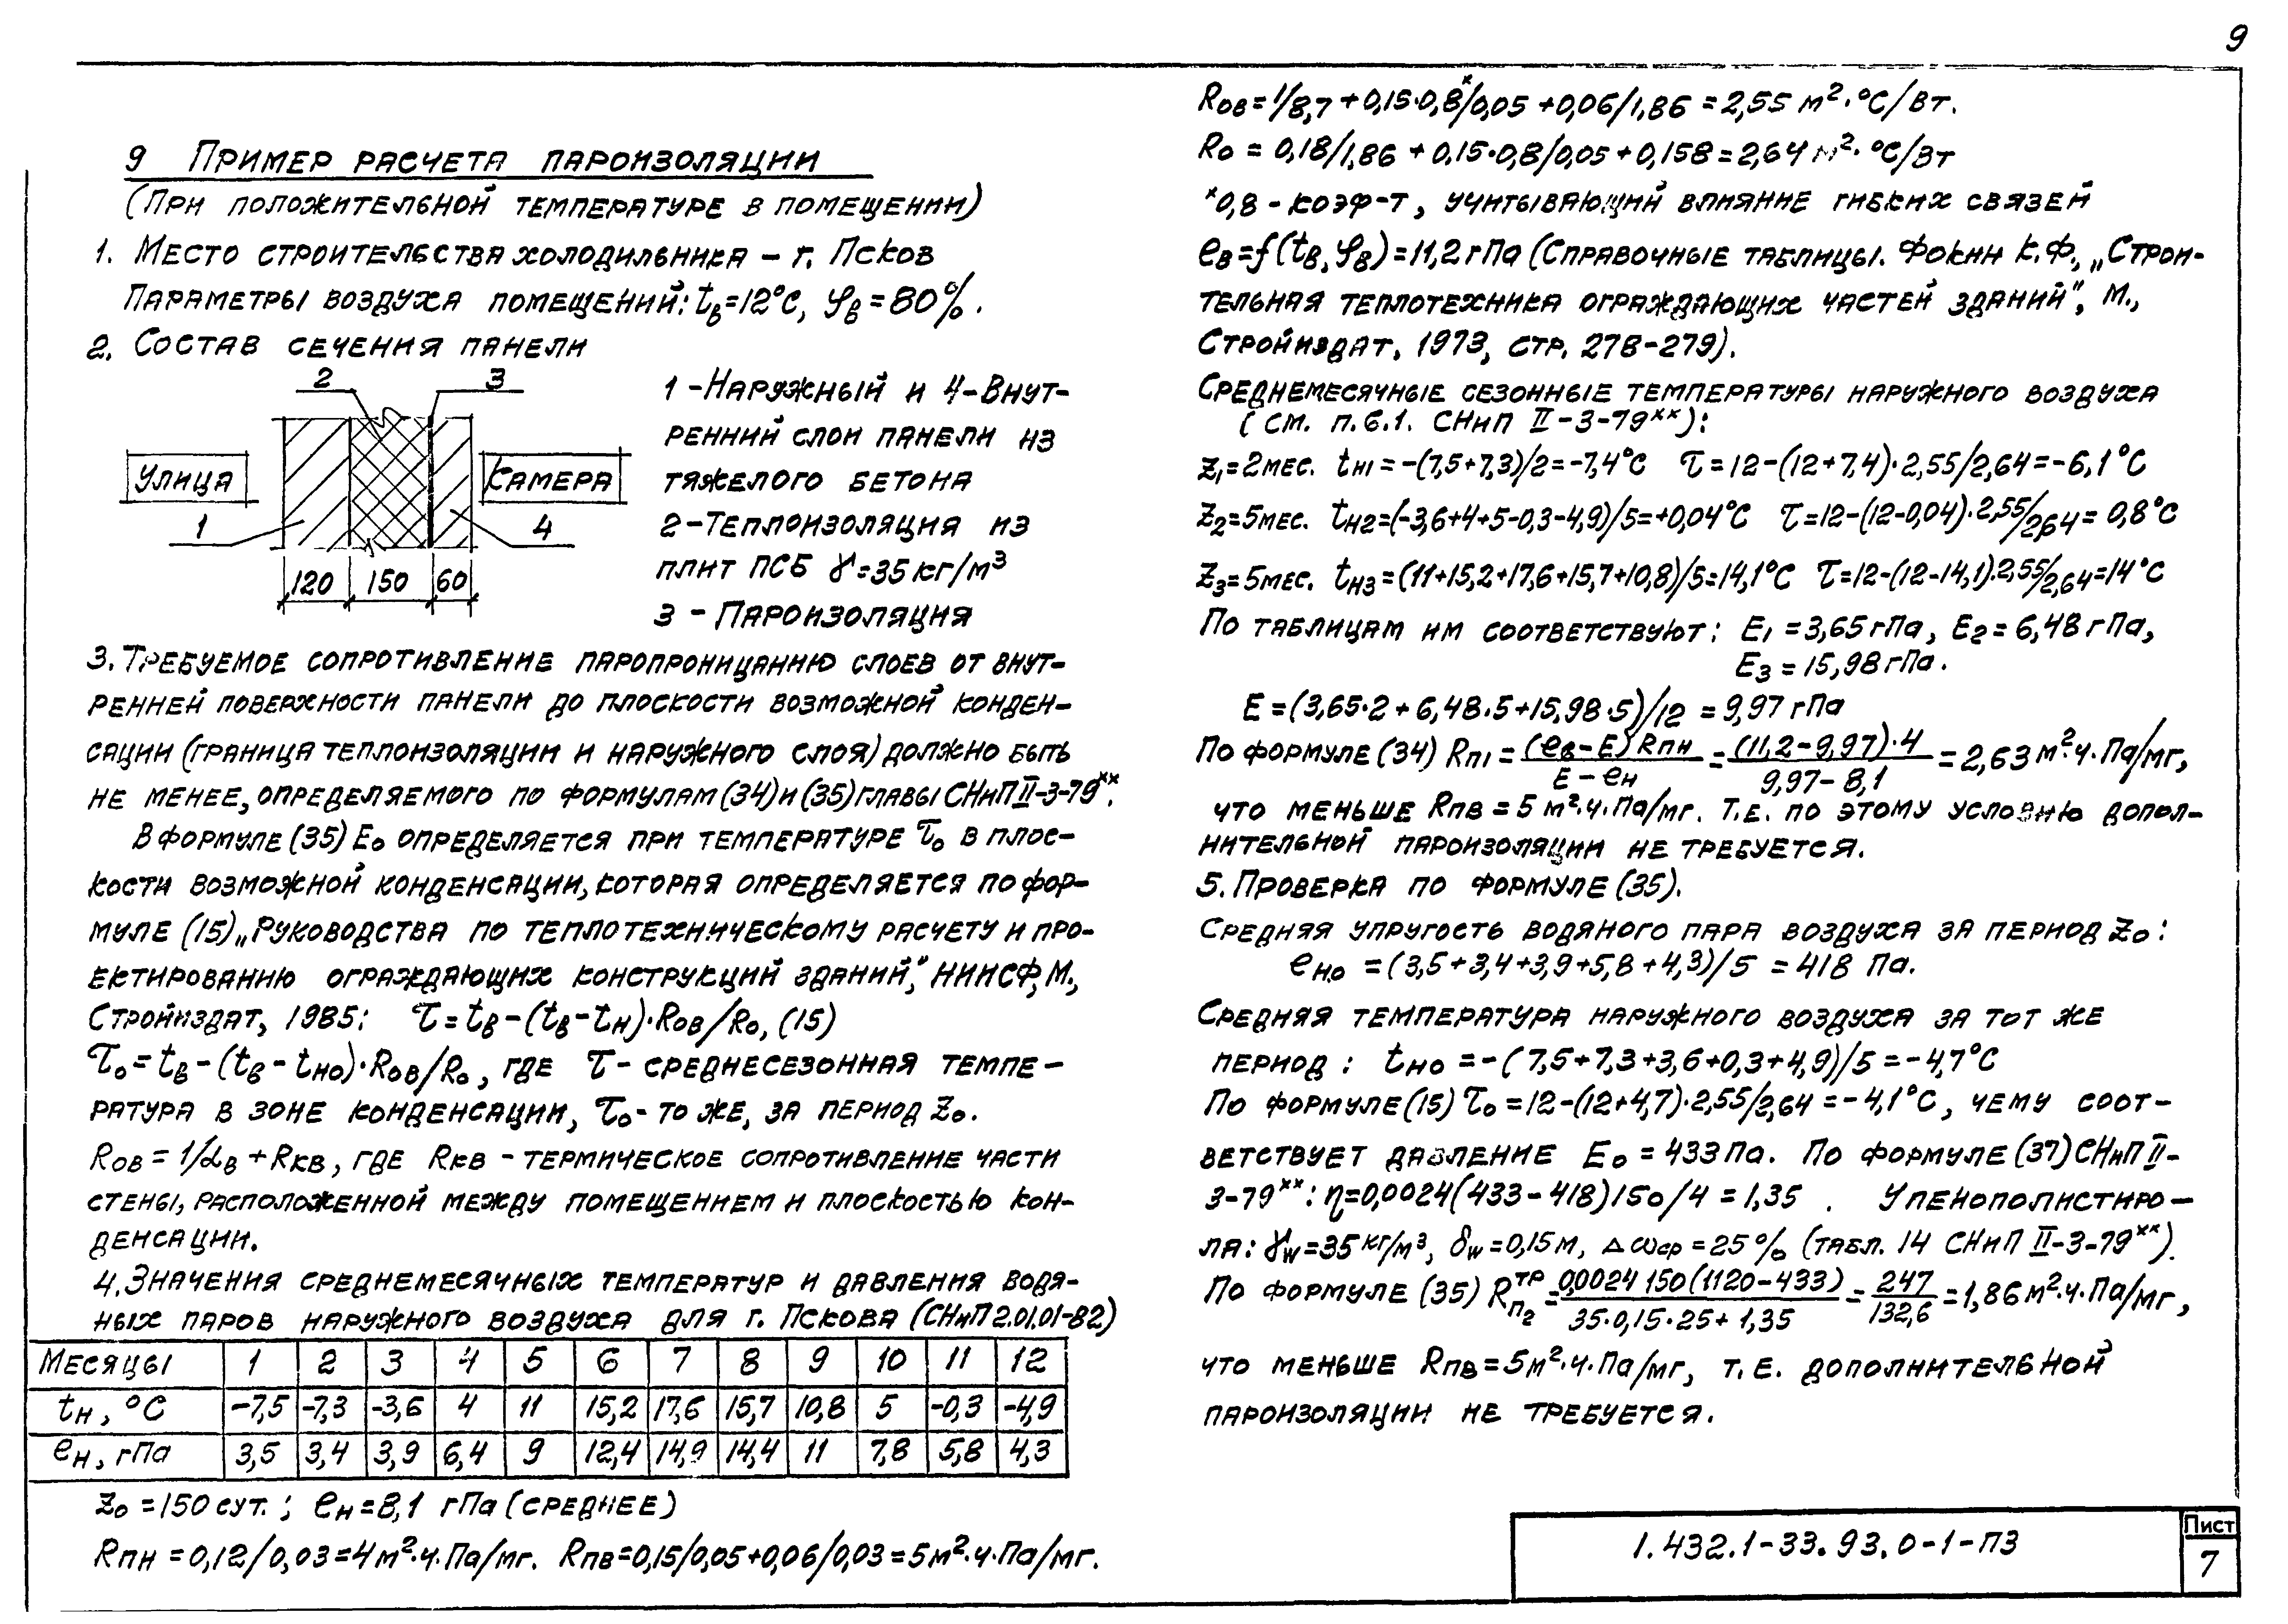 9
9 Пример расчета пароизоляции
(При положительной температуре в помещении)
1. Место строительства холодильника – г. Псков
Параметры воздуха помещений: tв=12°С, φв=80%.
2. Состав сечения панели
2 3
Улица
Камера
1 4
120 150 60
1 -Наружный и 4-Внут-
ренний слои панели из
тяжелого бетона
2-Теплоизоляция из
плит ПСБ γ=35кг/м³
3 - Пароизоляция
3. Требуемое сопротивление паропроницанию слоев от внут-
ренней поверхности панели до плоскости возможной конден-
сации (граница теплоизоляции и наружного слоя) должно быть
не менее, определяемого по формулам (34) и (35) главы СНиП II-3-79ˣˣ.
В формуле (35) Eо определяется при температуре τо в плос-
кости возможной конденсации, которая определяется по фор-
муле (15) „Руководства по теплотехническому расчету и про-
ектированию ограждающих конструкций зданий", НИИСФ, М.,
Стройиздат, 1985: τ=tв-(tв-tн)·Rов/Rо, (15)
τо=tв-(tв-tно)·Rов/Rо, где τ- среднесезонная темпе-
ратура в зоне конденсации, τо- то же, за период Zо.
Rов=1/αв+Rкв, где Rкв - термическое сопротивление части
стены, расположенной между помещением и плоскостью кон-
денсации.
4. Значения среднемесячных температур и давления водя-
ных паров наружного воздуха для г. Пскова (СНиП 2.01.01-82)
Месяцы 1 2 3 4 5 6 7 8 9 10 11 12
tн, °С -7,5 -7,3 -3,6 4 11 15,2 17,6 15,7 10,8 5 -0,3 -4,9
ен, гПа 3,5 3,4 3,9 6,4 9 12,4 14,9 14,4 11 7,8 5,8 4,3
Zо=150 сут.; ен=8,1 гПа (среднее)
Rпн=0,12/0,03=4м²·ч·Па/мг. Rпв=0,15/0,05+0,06/0,03=5м²·ч·Па/мг.
Rов=1/8,7+0,15·0,8ˣ/0,05+0,06/1,86=2,55 м²·°С/Вт.
Rо = 0,18/1,86+0,15·0,8/0,05+0,158=2,64 м²·°С/Вт
ˣ0,8 - коэф-т, учитывающий влияние гибких связей
ев=f(tв, φв)=11,2 гПа (Справочные таблицы. Фокин К.Ф., „Строи-
тельная теплотехника ограждающих частей зданий", М.,
Стройиздат, 1973, стр. 278-279).
Среднемесячные сезонные температуры наружного воздуха
(см. п.6.1. СНиП II-3-79ˣˣ):
Z1=2мес. tн1=-(7,5+7,3)/2=-7,4°С τ=12-(12+7,4)·2,55/2,64=-6,1°С
Z2=5мес. tн2=(-3,6+4+5-0,3-4,9)/5=+0,04°С τ=12-(12-0,04)·2,55/2,64=0,8°С
Z3=5мес. tн3=(11+15,2+17,6+15,7+10,8)/5=14,1°С τ=12-(12-14,1)·2,55/2,64=14°С
По таблицам им соответствуют: E1=3,65гПа, E2=6,48гПа,
E3=15,98гПа.
E=(3,65·2+6,48·5+15,98·5)/12=9,97 гПа
По формуле (34) Rп1=(ев-E)Rпн/E-ен=(11,2-9,97)·4/9,97-8,1=2,63м²·ч·Па/мг,
что меньше Rпв=5м²·ч·Па/мг. Т.е. по этому условию допол-
нительной пароизоляции не требуется.
5. Проверка по формуле (35).
Средняя упругость водяного пара воздуха за период Zо:
ено =(3,5+3,4+3,9+5,8+4,3)/5 =418 Па.
Средняя температура наружного воздуха за тот же
период: tно=-(7,5+7,3+3,6+0,3+4,9)/5=-4,7°С
По формуле (15) τо=12-(12+4,7)·2,55/2,64=-4,1°С, чему соот-
ветствует давление Eо=433Па. По формуле (37) СНиП II-
3-79ˣˣ: η=0,0024(433-418)150/4=1,35. У пенополистиро-
ла: γw=35кг/м³, δw=0,15м, Δωср=25% (табл. 14 СНиП II-3-79ˣˣ).
По формуле (35) Rп2ᵀᴾ=0,0024 150(1120-433)/35·0,15·25+1,35=247/132,6=1,86м²·ч·Па/мг,
что меньше Rпв=5м²·ч·Па/мг, т.е. дополнительной
пароизоляции не требуется.
1.432.1-33.93.0-1-ПЗ
Лист
7